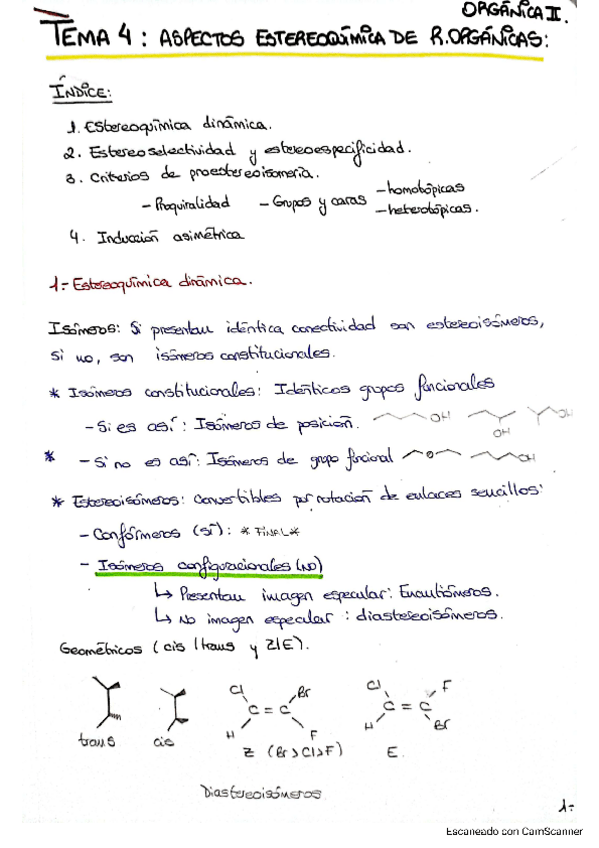 ORGÁNICA II.
TEMA 4: ASPECTOS ESTEREOQUÍMICA DE R.ORGÁNICAS:
ÍNDICE:
1. Estereoquímica dinámica.
2. Estereoselectividad y estereoespecificidad.
3. Criterios de proestereoisomería.
- Proquiralidad - Grupos y caras - homotópicas
- heterotópicas.
4. Inducción asimétrica
1- Estereoquímica dinámica.
Isómeros: Si presentan idéntica conectividad son estereoisómeros,
Si no, son isómeros constitucionales.
* Isómeros constitucionales: Idénticos grupos funcionales
- Si es así: Isómeros de posición. OH OH OH
* - Si no es así: Isómeros de grupo funcional O OH
* Estereoisómeros: Convertibles por rotación de enlaces sencillos:
- Confórmeros (sí): * FINAL *
- Isómeros configuracionales (NO)
↳ Presentan imagen especular: Enantiómeros.
↳ No imagen especular: diastereoisómeros.
Geométricos (cis/trans y Z/E).
Cl Br Cl F
C = C C = C
H F H Br
trans cis Z (Br>Cl>F) E
Diastereoisómeros
1-
Escaneado con CamScanner